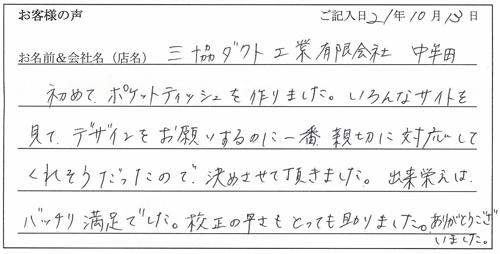 お客様の声
ご記入日 21年10月13日
お名前&会社名（店名） 三協ダクト工業有限会社 中牟田
初めて、ポケットティッシュを作りました。いろんなサイトを
見て、デザインをお願いするのに一番、親切に対応して
くれそうだったので、決めさせて頂きました。出来栄えは、
バッチリ満足でした。校正の早さもとっても助かりました。ありがとうござ
いました。